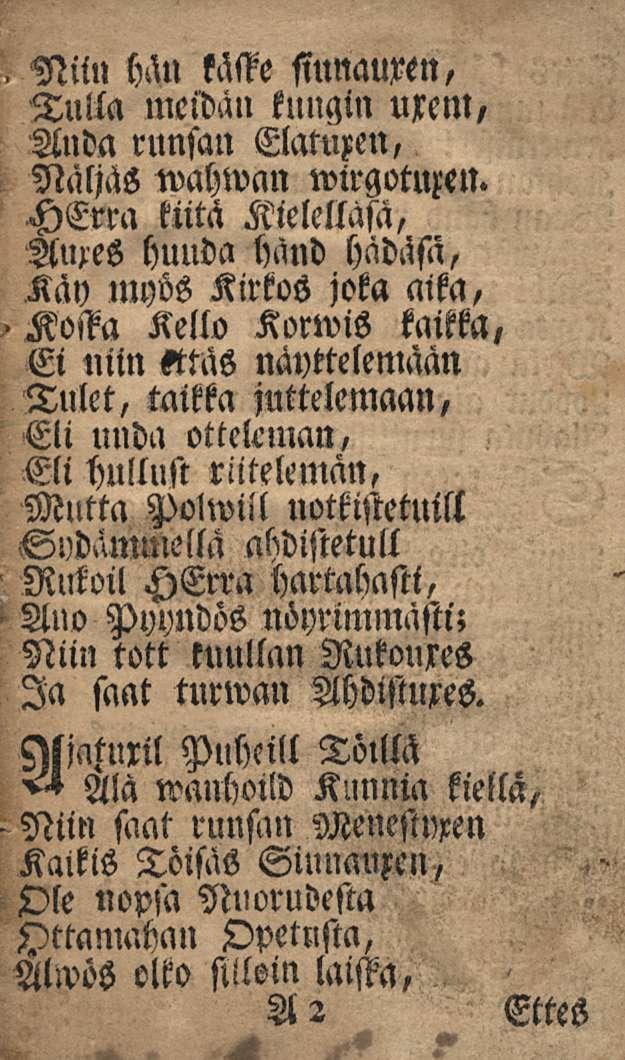 Niin hän käske siunauxen,
Tulla meidän kungin uxem,
Anda runsan Elatuxen,
Näljäs wahwan wirgotuxen.
HErra kiitä Kielelläsä,
Auxes huuda händ hädäsä,
Käy myös Kirkos joka aika,
Koska Kello Korwis kaikka,
Ei niin ettäs näyttelemään
Tulet, taikka juttelemaan,
Eli unda otteleman,
Eli hullust riitelemän,
Mutta Polwill notkistetuill
Sydämmellä ahdistetull
Rukoil HErra hartahasti,
Ano Pyyndös nöyrimmästi;
Niin tott kuullan Rukouxes
Ja saat turwan Ahdistuxes.
Ajatuxil Puheill Töillä
Älä wanhoild Kunnia kiellä,
Niin saat runsan Menestyxen
Kaikis Töisäs Siunauxen,
Ole nopsa Nuorudesta
Ottamahan Opetusta,
Älwös olko silloin laiska,
A 2 Ettes